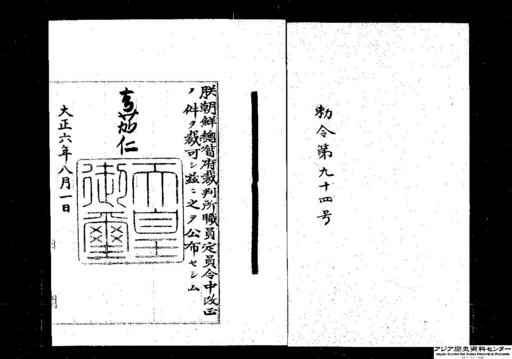 勅令第九十四号
朕朝鮮總督府裁判所職員定員令中改正
ノ件ヲ裁可シ茲ニ之ヲ公布セシム
嘉仁
天皇御璽
大正六年八月一日
アジア歴史資料センター
Japan Center for Asian Historical Records